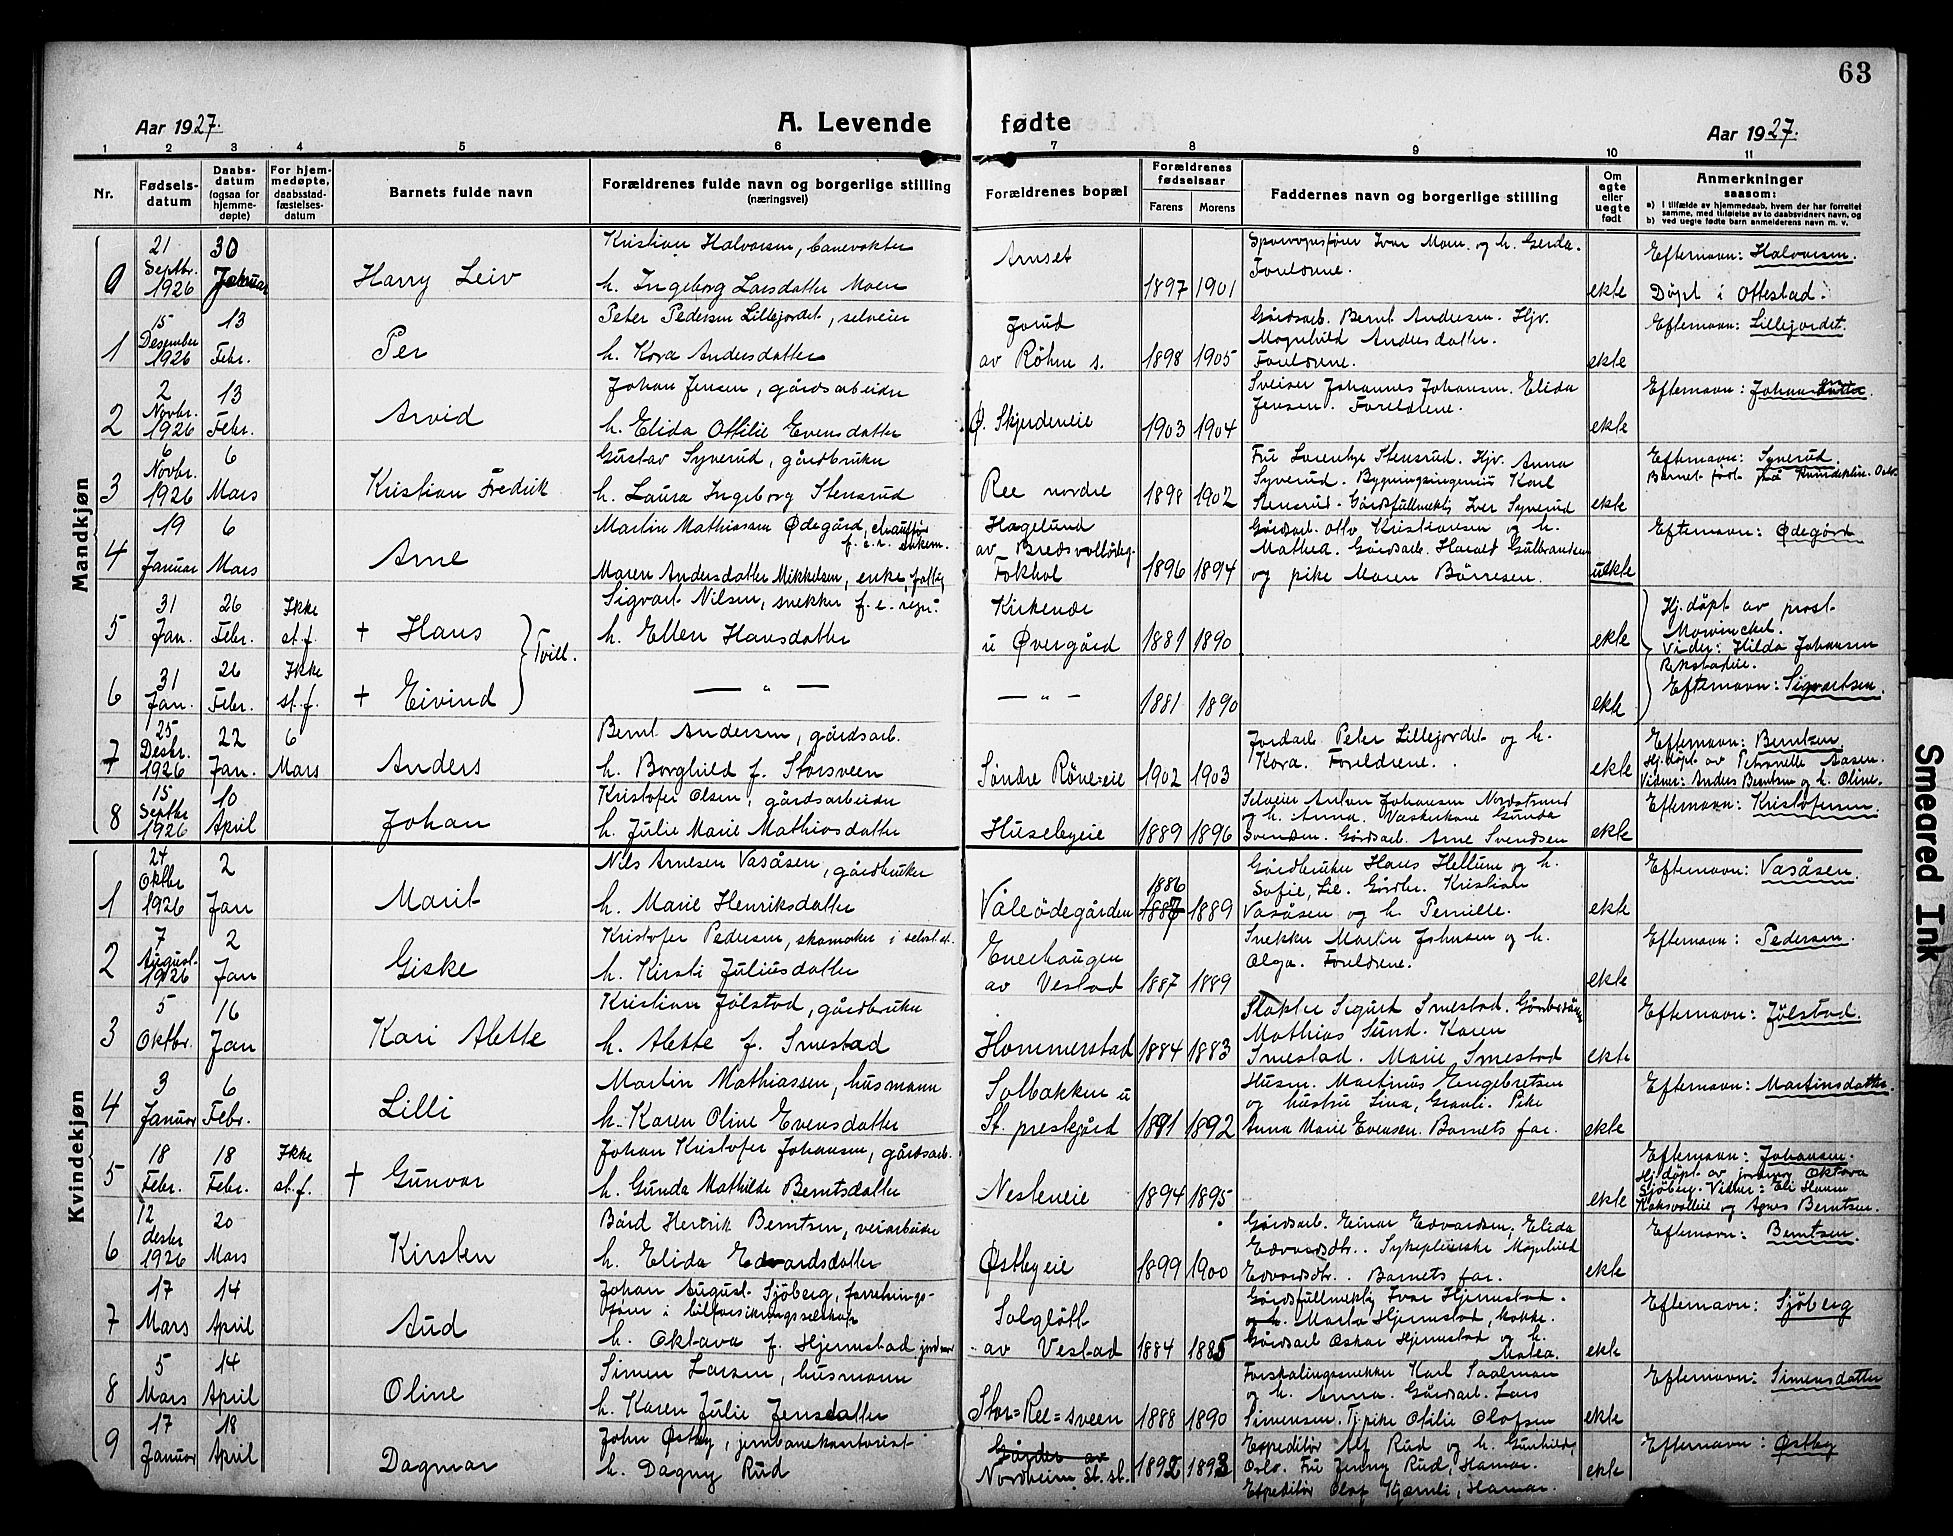 63
Aar 1927.
A. Levende fødte
Aar 1927.
1 2 3 4 5 6 7 8 9 10 11
Nr.
Fødsels-
datum
Daabs-
datum
(ogsaa for
hjemme-
døpte)
For hjem-
medøpte,
daabsstad-
fæstelses-
datum
Barnets fulde navn
Forældrenes fulde navn og borgerlige stilling
(næringsvei)
Forældrenes bopæl
Forældrenes
fødselsaar
Farens Morens
Faddernes navn og borgerlige stilling
Om
egte
eller
uegte
født
Anmerkninger
saasom:
a) I tilfælde av hjemmedaab, hvem der har forrettet
samme, med tilføielse av to daabsvidners navn, og
b) ved uegte fødte barn anmelderens navn m. v.
Mandkjøn
0
21
Septbr.
1926
30
Januar
Harry Leiv
Kristian Halvorsen, banevokter
h. Ingeborg Larsdatter Moen
Arnset
1897 1901
Foreldrene.
ekte
Efternavn: Halvorsen.
Døpt i Ottestad.
1
15
Desember
1926
13
Febr.
Per
Peter Pedersen Lillejordet, selveier
h. Kora Andersdatter
Jorud
av Röhne s.
1898 1905
Gårdsarb. Bernt Andersen. Hjv.
Magnhild Andersdatter.
Foreldrene.
ekte
Efternavn: Lillejordet.
2
2
Novbr.
1926
13
Febr.
Arvid
Johan Jensen, gårdsarbeider
h. Elida Otilie Evensdatter
Ø. Skjerdeneie
1903 1904
Sveiser Johannes Johansen. Elida
Jensen. Foreldrene.
ekte
Efternavn: Johansen.
3
6
Novbr.
1926
6
Mars
Kristian Fredrik
Gustav Syverud, gårdbruker
h. Laura Ingeborg Stensrud
Ree nordre
1898 1902
Fru Lorentze Stensrud. Hjv. Anna
Syverud. Bygningsingeniør Karl
Stensrud. Gårdsfullmektig Iver Syverud
ekte
Efternavn: Syverud.
Barnet født på Kvindeklin. Oslo.
4
19
Januar
6
Mars
Arne
Martin Mathiassen Ødegård, chauffør
f. e. r. enkem.
Maren Andersdatter Mikkelsen, enke, fattig
Hagelund
av Bredsvollødeg.
Fokhol
1896 1894
Gårdsarb. Otto Kristiansen og h.
Mathea. Gårdsarb. Harald Gulbrandsen
og pike Maren Börresen.
uekte
Efternavn: Ødegård
5
31
Jan.
26
Febr.
Ikke
st. f.
+ Hans
Tvill.
Sigvart Nilsen, snekker f. e. regn.
h. Ellen Hansdatter
Kirkenær
u Øvergård
1881 1890
ekte
Hj. døpt av prost
Morvinckel.
Vidner: Hilda Johansen
Rekstadeie.
6
31
Jan.
26
Febr.
Ikke
st. f.
+ Eivind
— „ —
— „ —
1881 1890
ekte
Efternavn: Sigvartsen.
7
25
Desbr.
1926
22
Jan.
6
Mars
Anders
Bernt Andersen, gårdsarb.
h. Borghild f. Storsveen
Søndre Røne-eie
1902 1903
Jordarb. Peter Lillejordet og h.
Kora. Foreldrene.
ekte
Efternavn: Berntsen.
Hj. døpt av Petronelle Aasen.
Vidner: Anders Berntsen og h. Oline.
8
15
Septbr
1926
10
April
Johan
Kristofer Olsen, gårdsarbeider
h. Julie Marie Mathiasdatter
Husebyeie
1889 1896
Selveier Anton Johansen Nordstrand
og h. Anna. Vaskerkone Gunda
Svendsen. Gårdsarb. Arne Svendsen
ekte
Efternavn: Kristofersen
Kvindekjøn
1
24
Oktbr
1926
2
Jan
Marit
Nils Arnesen Vasåsen, gårdbruker
h. Marie Henriksdatter
Våleødegården
1886
1887 1889
Gårdbruker Hans Hellum og h.
Sofie, Lie. Gårdbr. Kristian
Vasåsen og h. Pernille.
ekte
Efternavn: Vasåsen.
2
7
August.
1926
2
Jan
Giske
Kristofer Pedersen, skomaker i selvst. st.
h. Kirsti Juliusdatter
Enerhaugen
av Vestad
1887 1889
Snekker Martin Johnsen og h.
Olga. Foreldrene.
ekte
Efternavn: Pedersen.
3
5
Oktbr.
16
Jan
Kari Alette
Kristian Jølstad, gårdbruker
h. Alette f. Smestad
Hommerstad
1884 1883
Slakter Sigurd Smestad.
Mathias Sund. Karen
Smestad. Marie Smestad
ekte
Efternavn: Jølstad.
4
3
Januar
6
Febr.
Lilli
Martin Mathiassen, husmann
h. Karen Oline Evensdatter
Solbakken u
St. prestegård
1891 1892
Husm. Martinus Engebretsen
og hustru Lina, Gravli. Pike
Anna Marie Evensen. Barnets far.
ekte
Efternavn: Martinsdatter.
5
18
Febr.
18
Febr.
Ikke
st. f.
+ Gunvor
Johan Kristofer Johansen, gårdsarb.
h. Gunda Mathilde Berntsdatter
Nesteneie
1894 1895
ekte
Efternavn: Johansen.
Hj. døpt av jordmor Oktava
Sjöberg. Vidner: Eli Hansen
og Agnes Berntsen.
6
12
desbr
1926
20
Mars
Kirsten
Bård Henrik Berntsen, veiarbeider
h. Elida Edvardsdatter
Østbyeie
1899 1900
Gårdsarb. Einar Edvardsen, Elida
Edvardsdtr. Sykepleierske Magnhild
Edvardsdtr. Barnets far.
ekte
Efternavn: Berntsen.
7
17
Mars
14
April
Aud
Johan August Sjöberg, forretnings-
fører i bilforsikringsselskap
h. Oktava f. Hjemstad jordmor
Solglött
av Vestad
1884 1885
Gårdsfullmektig Ivar Hjemstad.
og h. Marta Hjemstad, kokke.
Gårdsarb Oskar Hjemstad og h.
Matea.
ekte
Efternavn: Sjöberg
8
5
Mars
14
April
Oline
Simen Larsen, husmann
h. Karen Julie Jensdatter
Stor=Ree=sveen
1888 1890
Forskalingssnekker Karl Saalman
og h. Anna. Gårdsarb. Lars
Simensen. Tj.pike Otilie Olafsen
ekte
Efternavn: Simensdatter
9
17
Januar
18
April
Dagmar
John Østby, jernbanekontorist
h. Dagny Rud
Gården av
Nordheim St. st.
1892 1893
Expeditör Alf Rud og h. Gunhild,
Oslo. Fru Jenny Rud, Hamar.
Expeditör Olaf Kjærnli, Hamar.
ekte
Efternavn: Østby
Smeared Ink